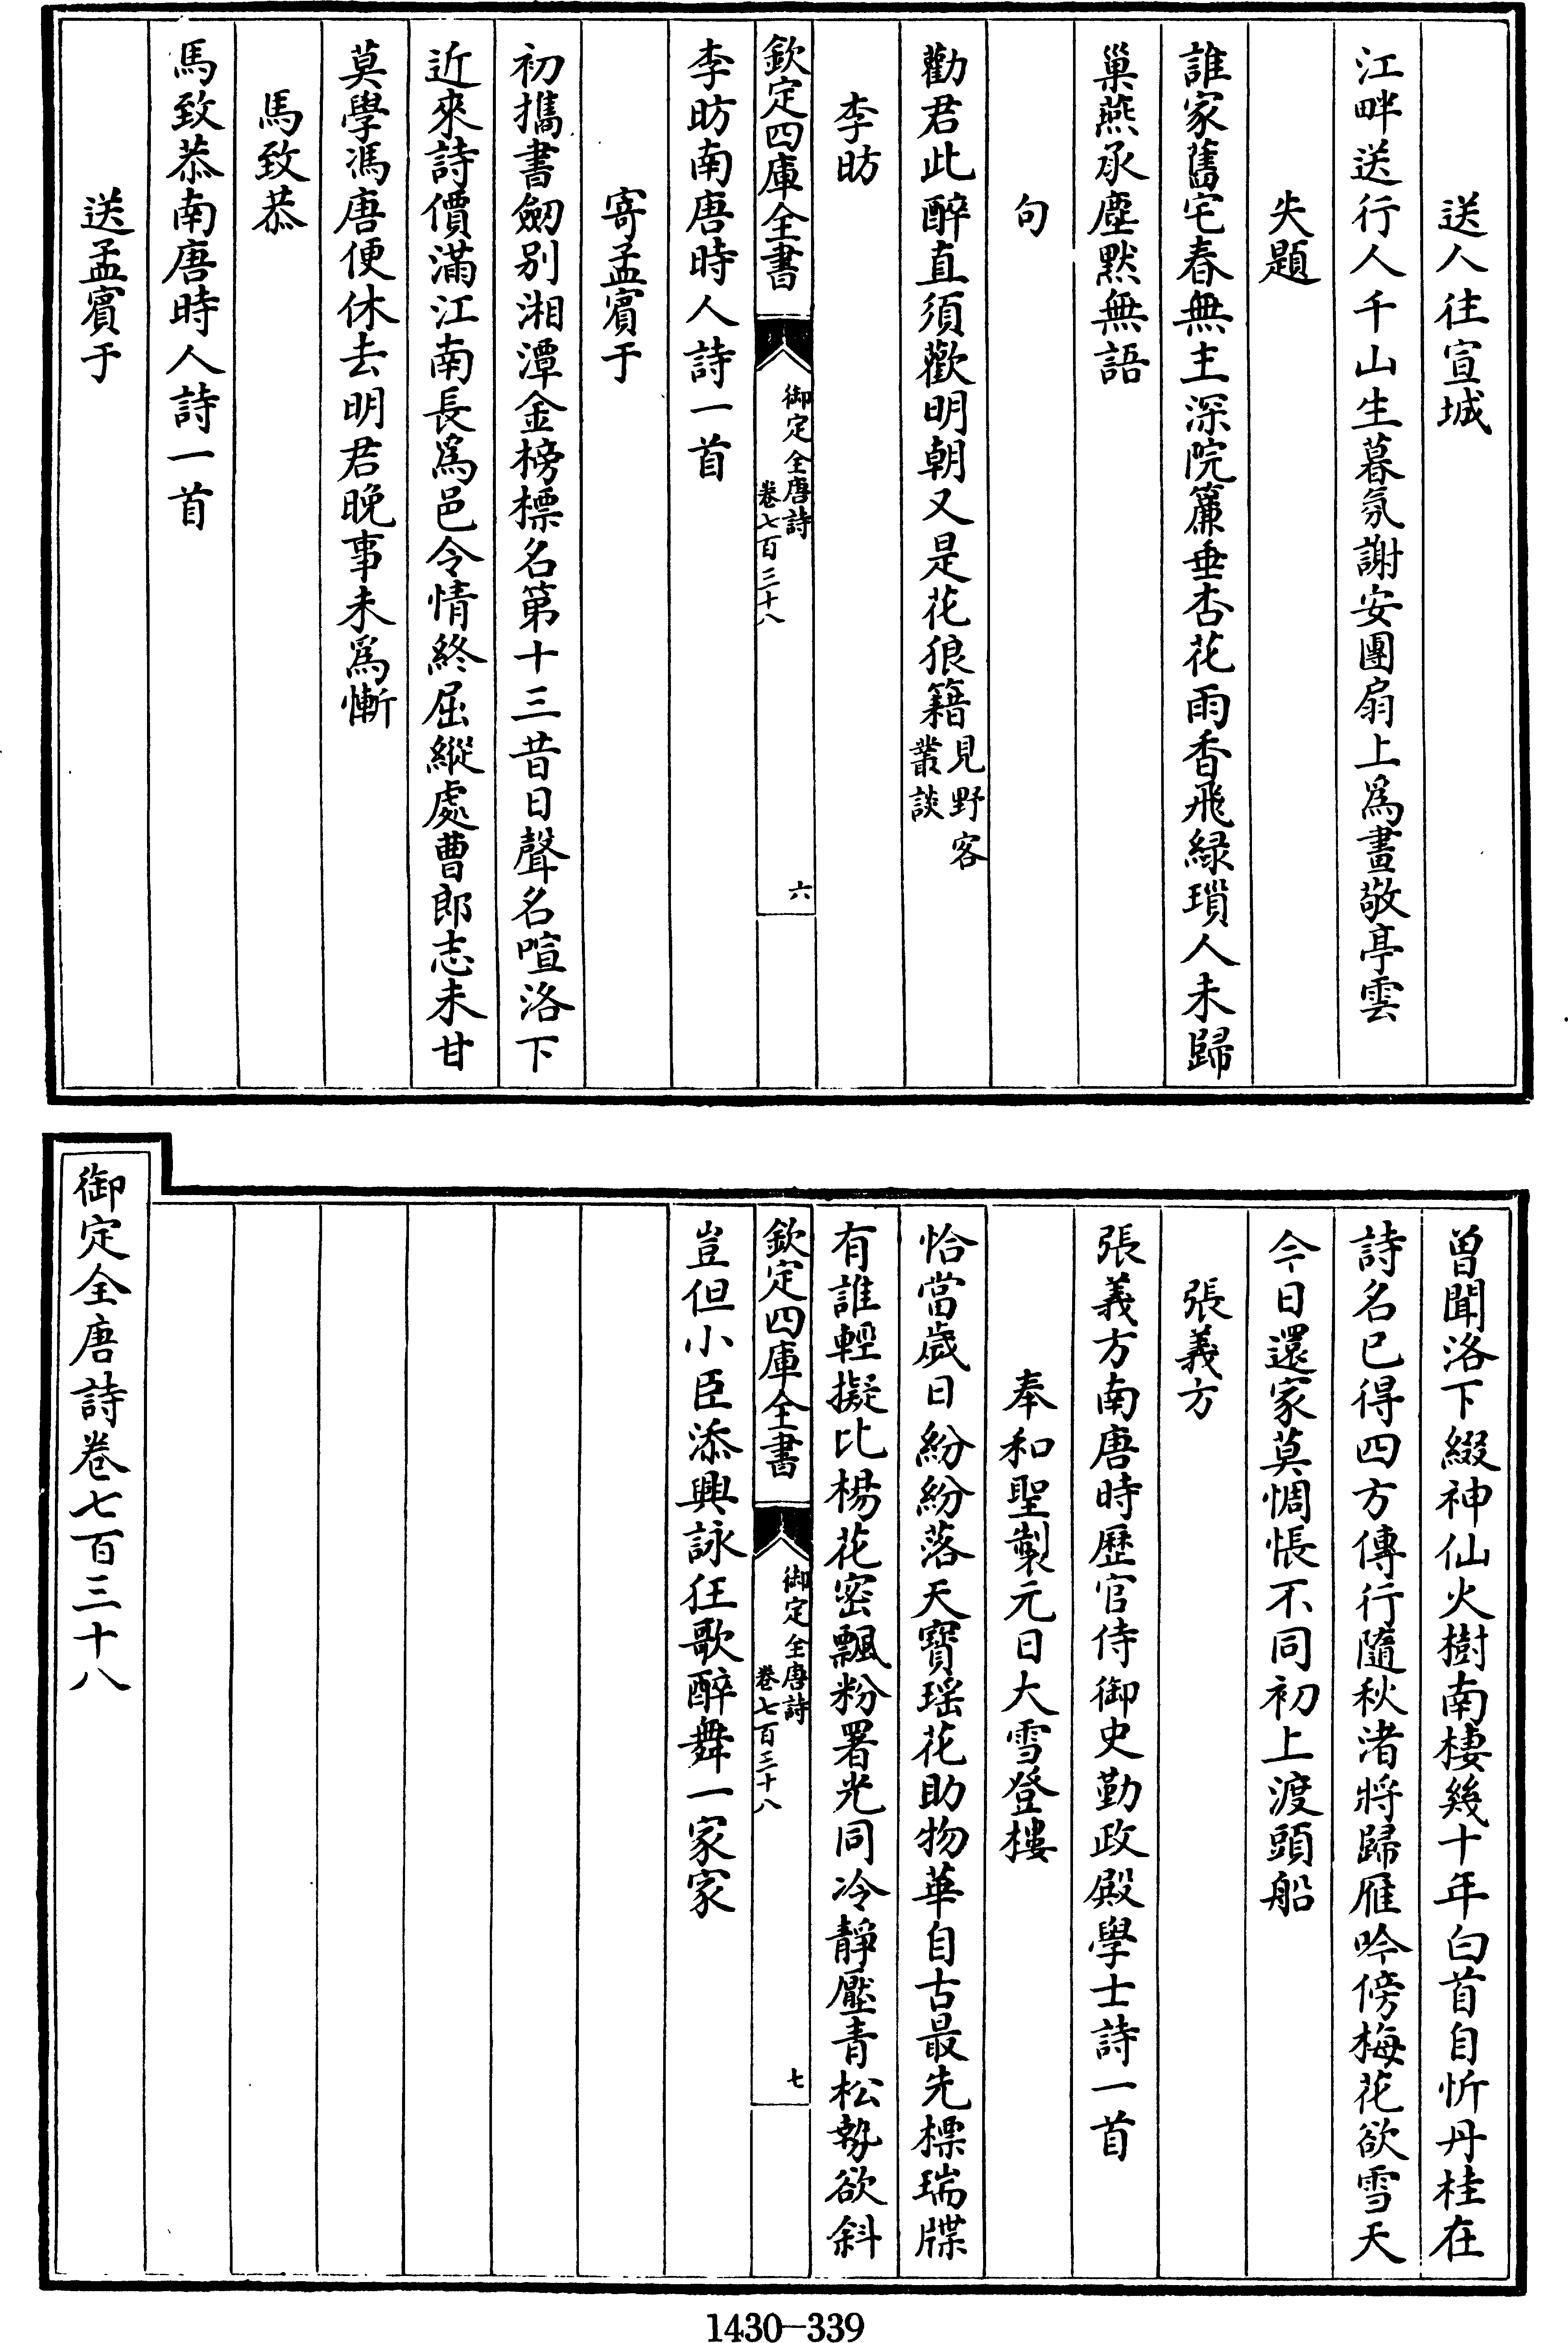 送人往宣城
江畔送行人千山生暮氛謝安團扇上爲畫敬亭雲
失題
誰家舊宅春無主深院簾垂杏花雨香飛緑瑣人未歸
巢燕承塵黙無語
句
勸君此醉直須歡明朝又是花狼籍見野客叢談
李昉
欽定四庫全書 御定全唐詩 卷七百三十八 六
李昉南唐時人詩一首
寄孟賓于
初攜書劒别湘潭金榜標名第十三昔日聲名喧洛下
近來詩價滿江南長爲邑令情終屈縱處曹郎志未甘
莫學馮唐便休去明君晚事未爲慚
馬致恭
馬致恭南唐時人詩一首
送孟賓于
曽聞洛下綴神仙火樹南棲幾十年白首自忻丹桂在
詩名已得四方傳行隨秋渚將歸雁吟傍梅花欲雪天
今日還家莫惆悵不同初上渡頭船
張義方
張義方南唐時歷官侍御史勤政殿學士詩一首
奉和聖製元日大雪登樓
恰當歲日紛紛落天寳瑶花助物華自古最先標瑞牒
有誰輕擬比楊花密飄粉署光同冷靜壓青松勢欲斜
欽定四庫全書 御定全唐詩 卷七百三十八 七
豈但小臣添興詠狂歌醉舞一家家
御定全唐詩卷七百三十八
1430-339